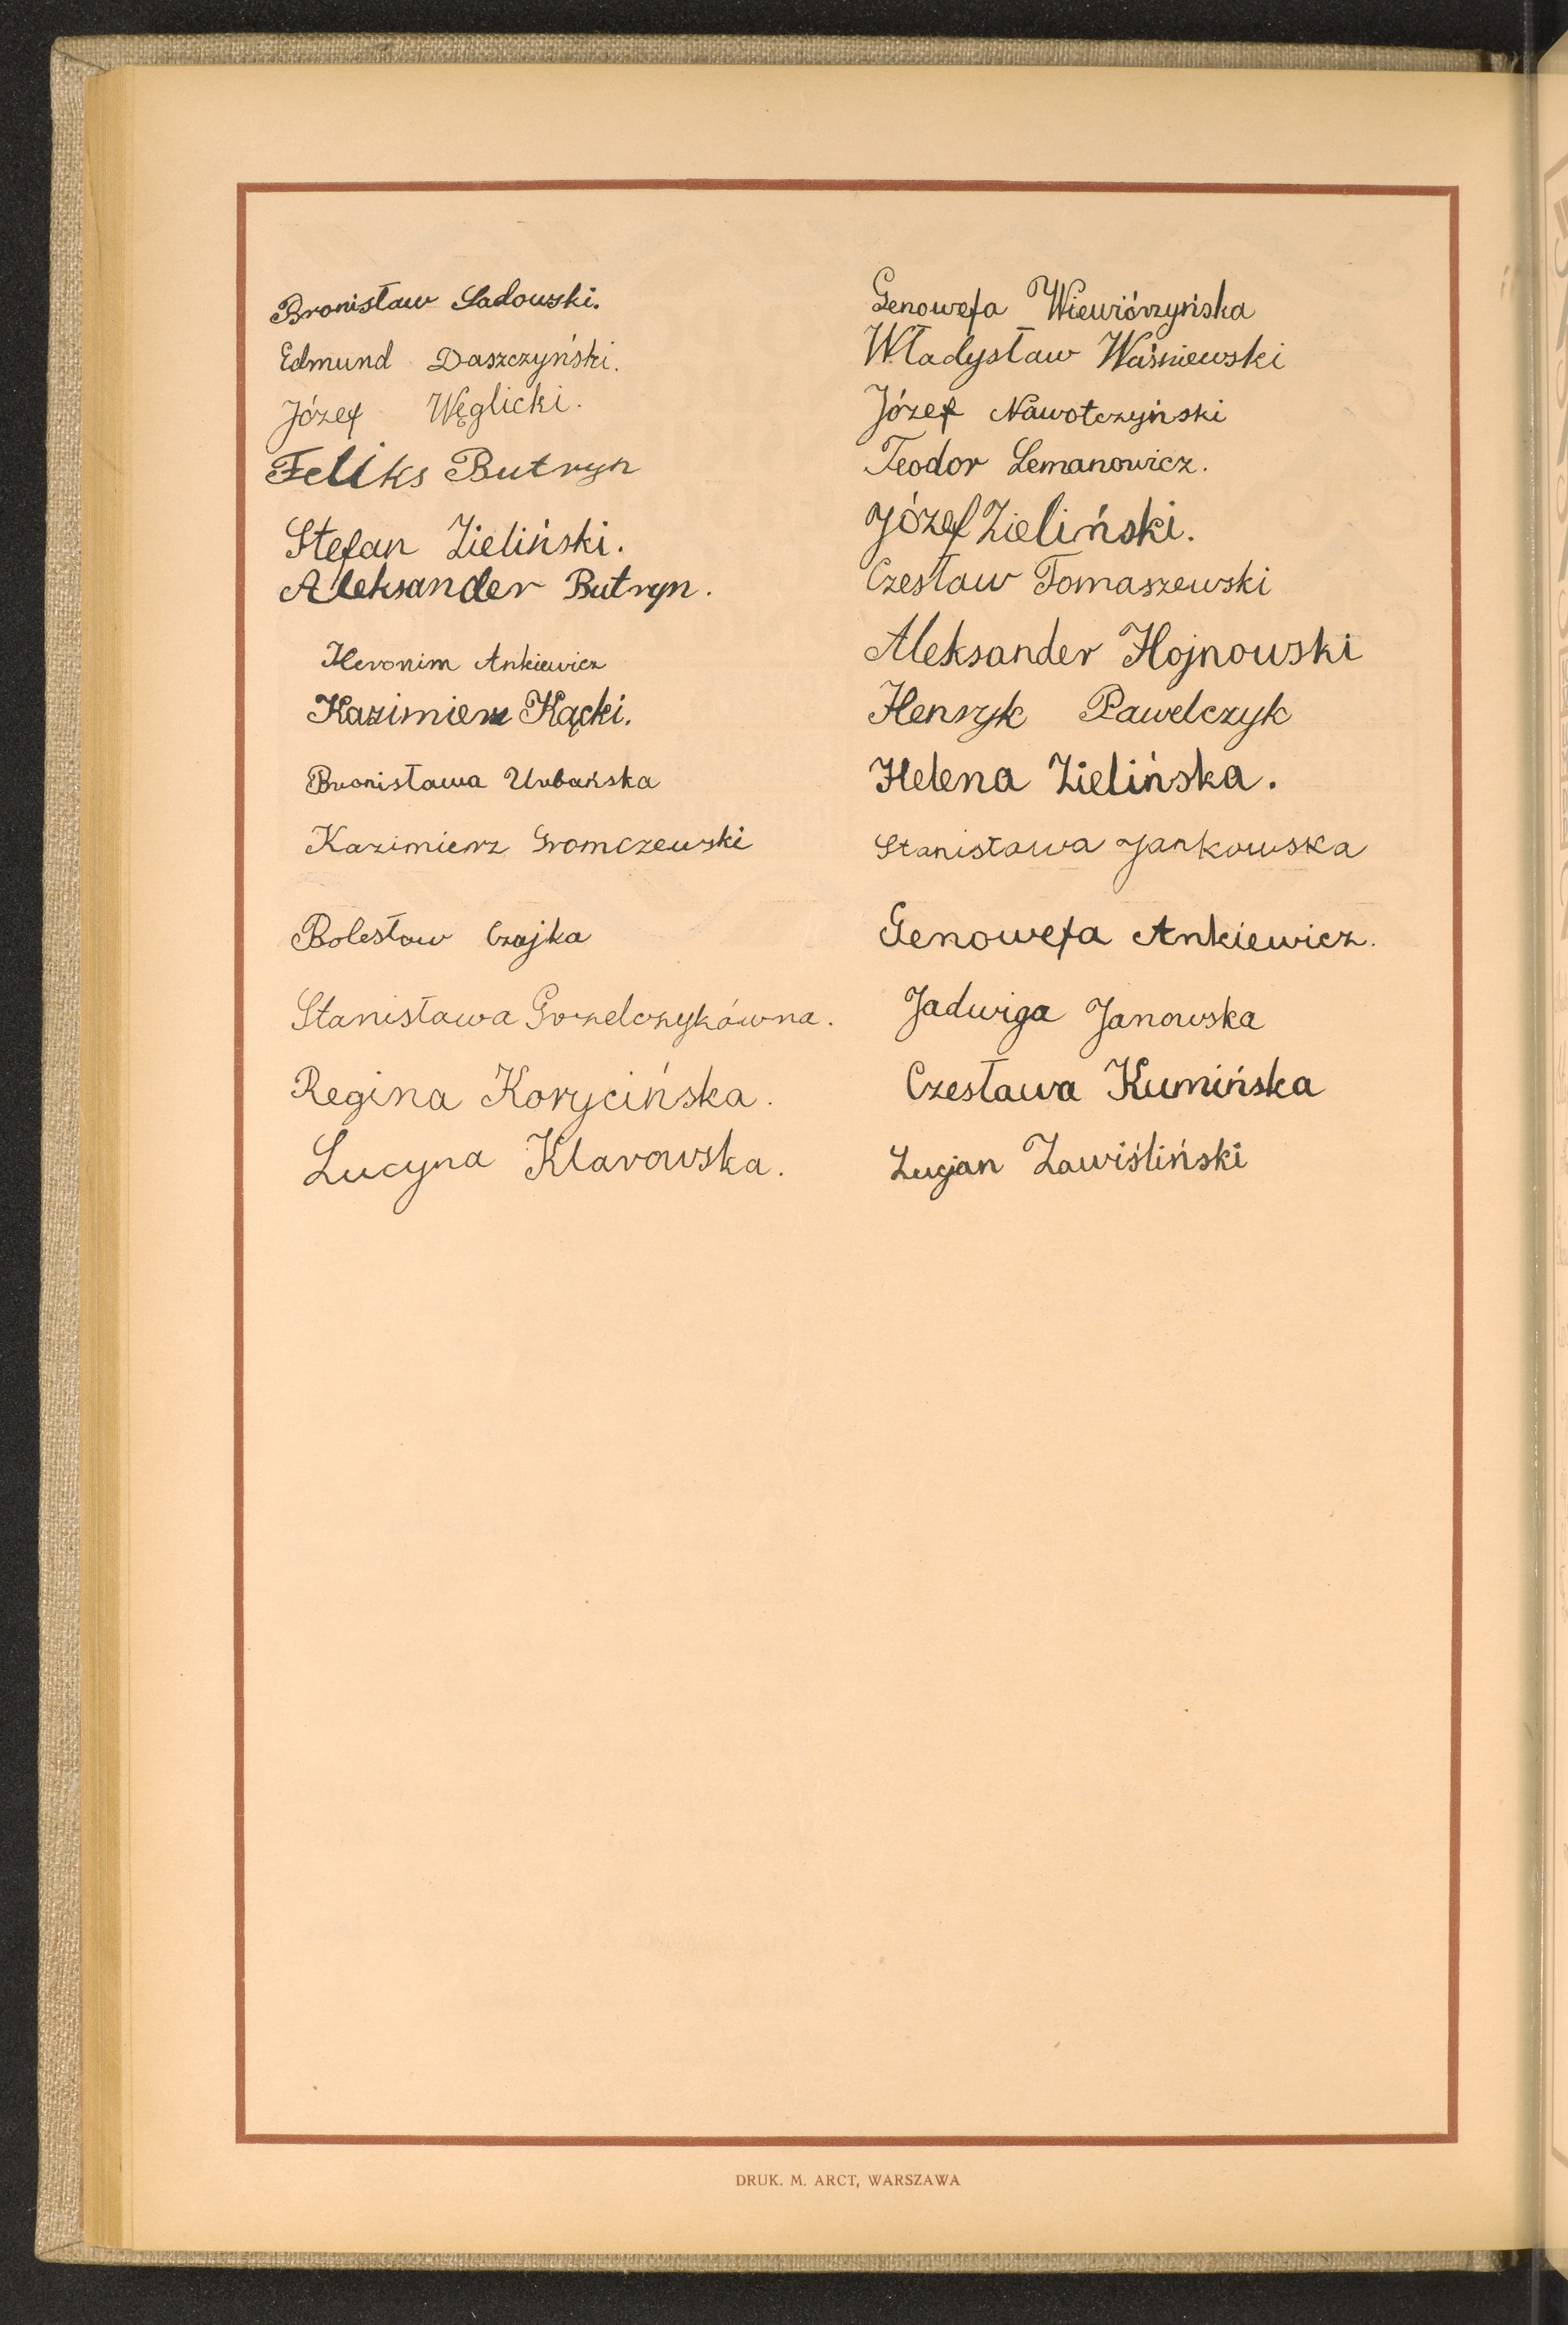 Bronisław Sadowski.
Edmund Daszczyński.
Józef Węglicki.
Feliks Butryn
Stefan Zieliński.
Aleksander Butryn.
Heronim Ankiewicz
Kazimierz Kącki.
Bronisława Urbańska
Kazimierz Gromczewski
Bolesław Czajka
Stanisława Gorzelczykówna.
Regina Korycińska.
Lucyna Klarowska.
Genowefa Wiewiórzyńska
Władysław Waśniewski
Józef Nawotczyński
Teodor Lemanowicz.
Józef Zieliński.
Czesław Tomaszewski
Aleksander Hojnowski
Henryk Pawelczyk
Helena Zielińska.
Stanisława Jankowska
Genowefa Ankiewicz.
Jadwiga Janowska
Czesława Kumińska
Lucjan Zawiśliński
DRUK. M. ARCT, WARSZAWA